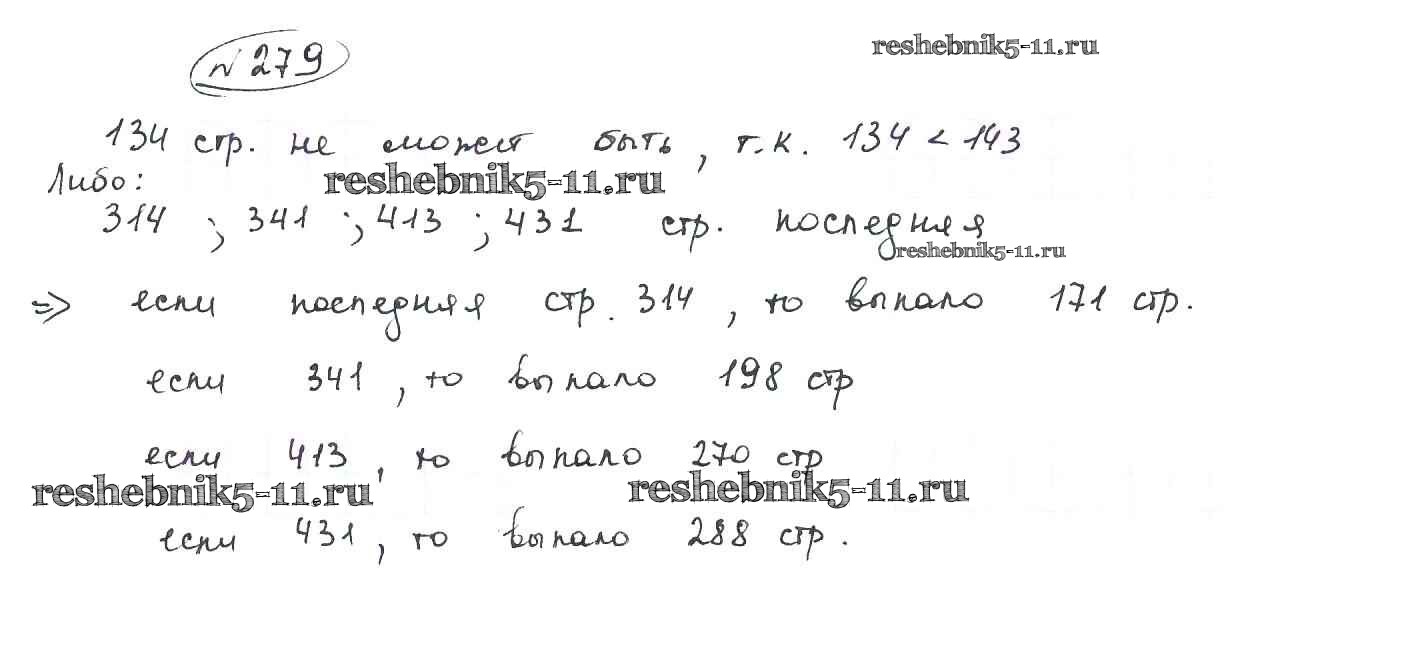 № 279
reshebnik5-11.ru
134 стр. не может быть, т.к. 134 < 143
Либо:
reshebnik5-11.ru
314 ; 341 ; 413 ; 431 стр. последняя
reshebnik5-11.ru
=> если последняя стр. 314, то выпало 171 стр.
если 341, то выпало 198 стр
если 413, то выпало 270 стр
reshebnik5-11.ru
reshebnik5-11.ru
если 431, то выпало 288 стр.